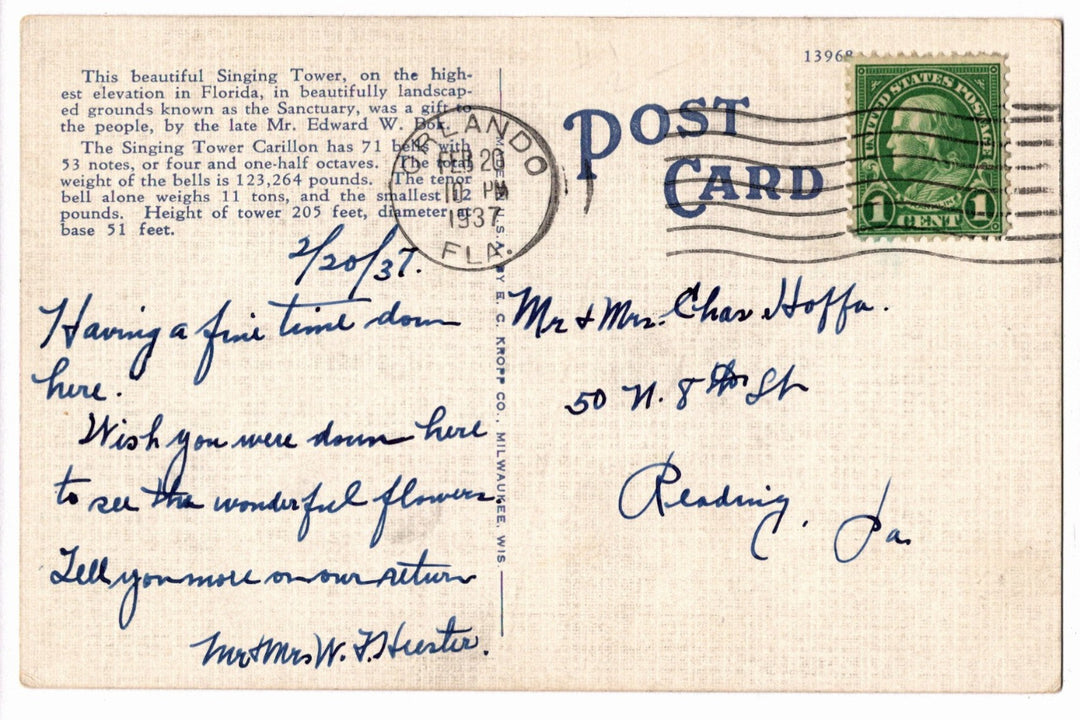 This beautiful Singing Tower, on the high-
est elevation in Florida, in beautifully landscap-
ed grounds known as the Sanctuary, was a gift to
the people, by the late Mr. Edward W. Bok.
The Singing Tower Carillon has 71 bells with
53 notes, or four and one-half octaves. The total
weight of the bells is 123,264 pounds. The tenor
bell alone weighs 11 tons, and the smallest 12
pounds. Height of tower 205 feet, diameter of
base 51 feet.
2/20/37.
Having a fine time down
here.
Wish you were down here
to see the wonderful flowers.
Tell you more on our return
Mr & Mrs W. F. Hiester.
MADE IN U.S.A. BY E. C. KROPP CO., MILWAUKEE, WIS.
ORLANDO
FEB 20
10 PM
1937
FLA.
POST
CARD
13968
UNITED STATES POSTAGE
1 CENT 1
Mr & Mrs. Chas Hoffa.
50 N. 8th St
Reading, Pa.